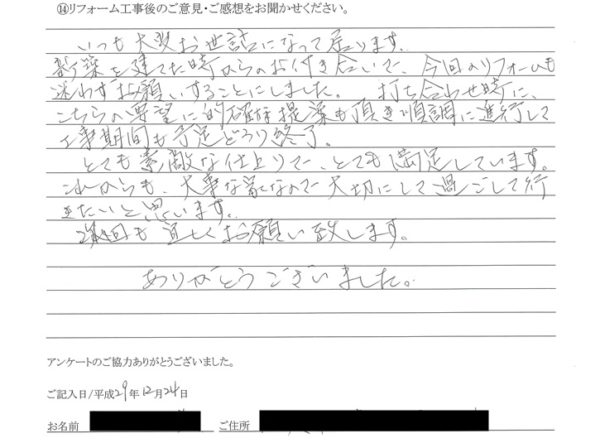 ⑭リフォーム工事後のご意見・ご感想をお聞かせください。
いつも大変お世話になって居ります。
新築を建てた時からのお付き合いで 今回のリフォームも
迷わずお願いすることにしました。 打ち合わせ時に、
こちらの要望に的確な提案も頂き順調に進行して
工事期間も予定どうり終了。
とても素敵な仕上りで、とても満足しています。
これからも、大事な家なので大切にして過ごして行
きたいと思います。
次回も宜しくお願い致します。
ありがとうございました。
アンケートのご協力ありがとうございました。
ご記入日/平成29年12月24日
お名前 ご住所